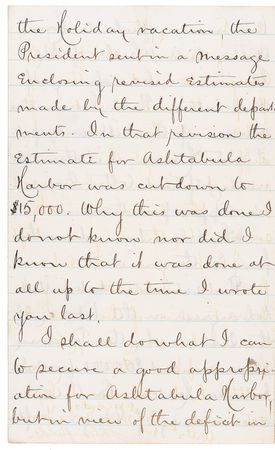 the Holiday vacation, the
President sent in a message
Enclosing revised Estimates
made by the different depart
ments. In that revision the
Estimate for Ashtabula
Harbor was cut down to
$15,000. Why this was done I
do not know nor did I
know that it was done at
all up to the time I wrote
you last.
I shall do what I can
to secure a good appropri-
ation for Ashtabula Harbor,
but in view of the deficit in